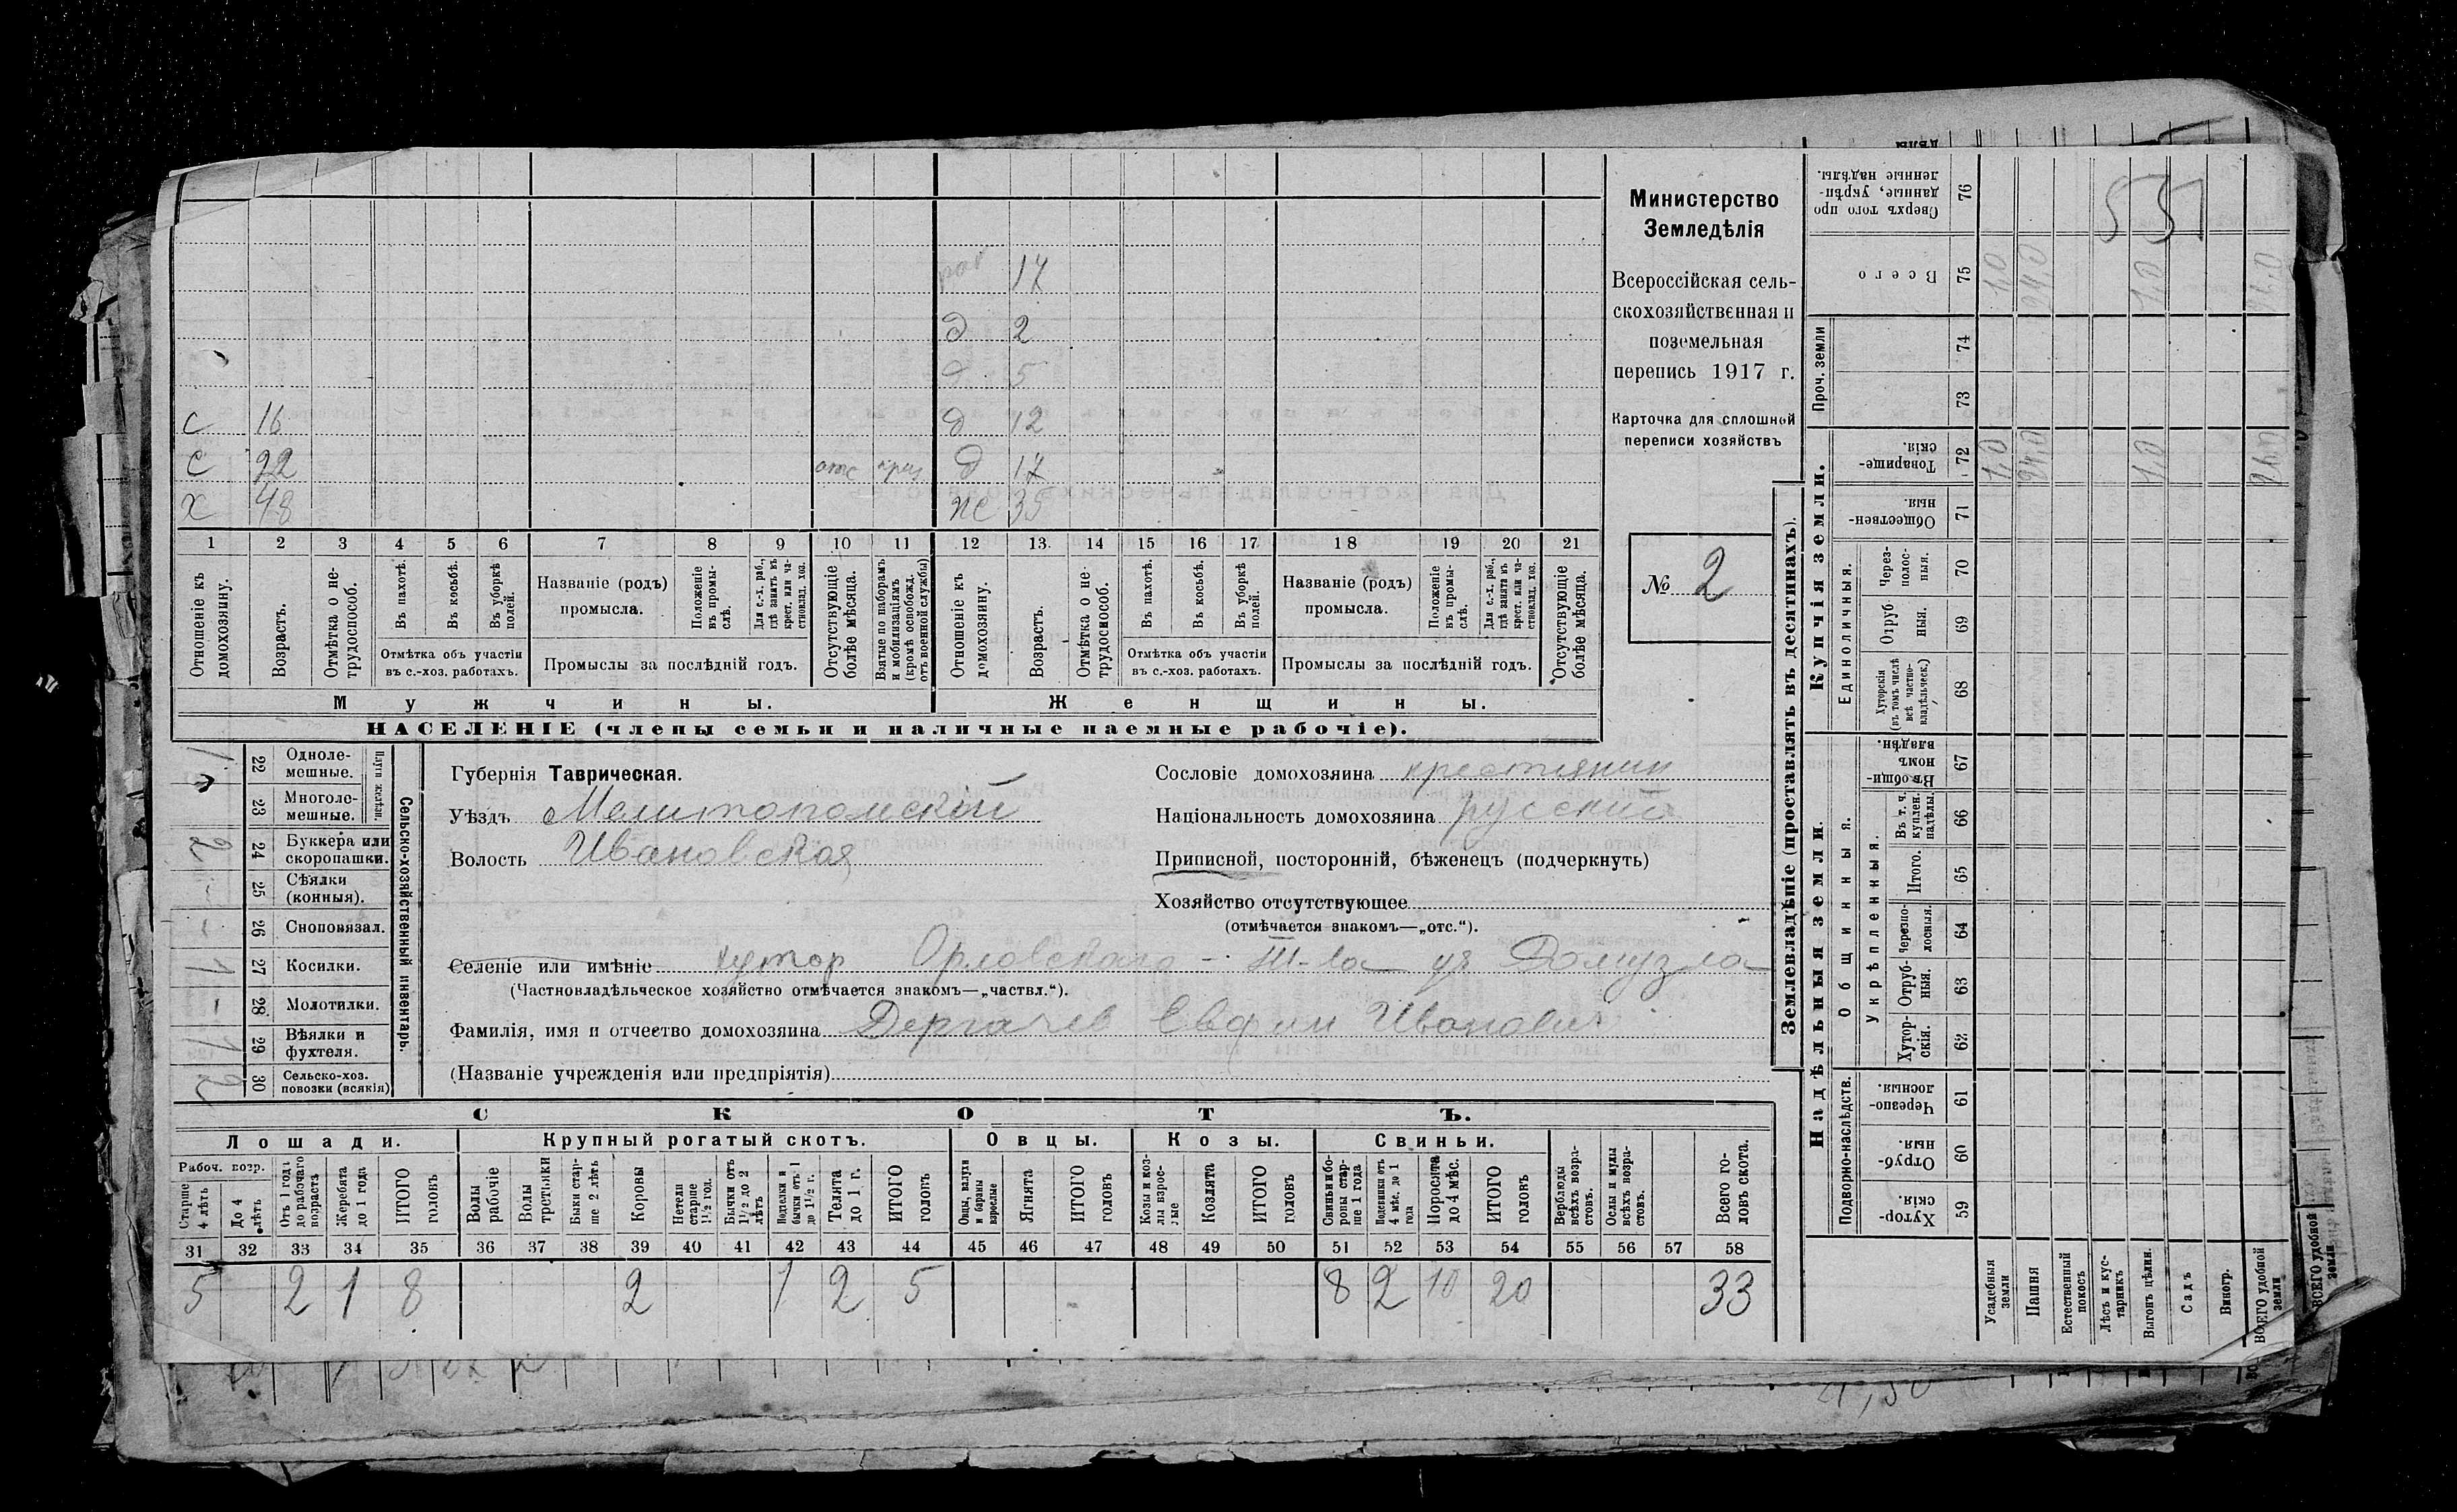 Министерство
Земледѣлія
Всероссійская сель-
скохозяйственная и
поземельная
перепись 1917 г.
Карточка для сплошной
переписи хозяйствъ
№ 2
17
д 2
д 5
с 16 д 12
с 22 отс д 17
х 48 35
1 2 3 4 5 6 7 8 9 10 11 12 13 14 15 16 17 18 19 20 21
Отношеніе къ домохозяину.
Возрастъ.
Отмѣтка о не-трудоспособ.
Въ пахотѣ.
Въ косьбѣ.
Въ уборкѣ полей.
Отмѣтка объ участіи
въ с.-хоз. работахъ.
Названіе (родъ)
промысла.
Положеніе въ промы-слѣ.
Для с.-х. раб., гдѣ занятъ въ крест. или ча-стновлад. хоз.
Промыслы за послѣдній годъ.
Отсутствующіе болѣе мѣсяца.
Взятые по наборамъ и мобилизаціямъ (кромѣ освобожд. отъ военной службы)
Отношеніе къ домохозяину.
Возрастъ.
Отмѣтка о не-трудоспособ.
Въ пахотѣ.
Въ косьбѣ.
Въ уборкѣ полей.
Отмѣтка объ участіи
въ с.-хоз. работахъ.
Названіе (родъ)
промысла.
Положеніе въ промы-слѣ.
Для с.-х. раб., гдѣ занята въ крест. или ча-стновлад. хоз.
Промыслы за послѣдній годъ.
Отсутствующіе болѣе мѣсяца.
Мужчины.
Женщины.
НАСЕЛЕНІЕ (члены семьи и наличные наемные рабочіе).
Сельско-хозяйственный инвентарь.
Плуги желѣзн.
22 Одноле-мешные. 1
23 Многоле-мешные.
24 Буккера или скоропашки. 2
25 Сѣялки (конныя). -
26 Сноповязал. -
27 Косилки. 1
28 Молотилки. -
29 Вѣялки и фухтеля. 1
30 Сельско-хоз. повозки (всякія) 2
Губернія Таврическая.
Уѣздъ Мелитопольский
Волость Ивановская
Сословіе домохозяина крестянин
Національность домохозяина русский
Приписной, посторонній, бѣженецъ (подчеркнуть)
Хозяйство отсутствующее
(отмѣчается знакомъ—„отс.“).
Селеніе или имѣніе хутор Орловского - Т-ва
(Частновладѣльческое хозяйство отмѣчается знакомъ—„частвл.“).
Фамилія, имя и отчество домохозяина Дергачев Ефим Иванович
(Названіе учрежденія или предпріятія)
СКОТЪ.
Лошади.
Крупный рогатый скотъ.
Овцы.
Козы.
Свиньи.
Рабоч. возр.
Старше 4 лѣтъ
До 4 лѣтъ
Отъ 1 года до рабочаго возраста
Жеребята до 1 года
ИТОГО головъ
Волы рабочіе
Волы третьяки
Быки стар-ше 2 лѣтъ
Коровы
Нетели старше 1½ год.
Бычки отъ 1½ до 2 лѣтъ
Подтелки и бычки отъ 1 до 1½ г.
Телята до 1 г.
ИТОГО головъ
Овцы, валухи и бараны взрослые
Ягнята
ИТОГО головъ
Козы и коз-лы взрос-лые
Козлята
ИТОГО головъ
Свиньи и бо-ровы стар-ше 1 года
Подсвинки отъ 4 мѣс. до 1 года
Поросята до 4 мѣс.
ИТОГО головъ
Верблюды всѣхъ возра-стовъ.
Ослы и мулы всѣхъ возра-стовъ.
Всего го-ловъ скота.
31 32 33 34 35 36 37 38 39 40 41 42 43 44 45 46 47 48 49 50 51 52 53 54 55 56 57 58
5 2 1 8 2 1 2 5 8 2 10 20 33
Землевладѣніе (проставлять въ десятинахъ).
Надѣльныя земли.
Купчія земли.
Проч. земли
Подворно-наслѣдств.
Общинныя.
Укрѣпленныя.
Единоличныя.
Хутор-скія. 59
Отруб-ныя. 60
Черезпо-лосныя. 61
Хутор-скія. 62
Отруб-ныя. 63
Черезпо-лосныя. 64
Итого. 65
Въ т. ч. куплен. надѣлы. 66
Въ общин-номъ владѣн. 67
Хуторскія (въ томъ числѣ всѣ частно-владѣльческ.) 68
Отруб-ныя. 69
Через-полос-ныя. 70
Обществен-ныя. 71
Товарище-скія. 72
73
74
Всего 75
Сверхъ того про-данные, укрѣп-ленные надѣлы. 76
Усадебныя земли 1,0 1,0
Пашня 24,0 24,0
Естественный покосъ
Лѣсъ и кус-тарникъ
Выгонъ цѣлин. 1,0 1,0
Садъ
Виногр.
ВСЕГО удобной земли 26,0 26,0
551
ВСЕГО удобной земли
21,50